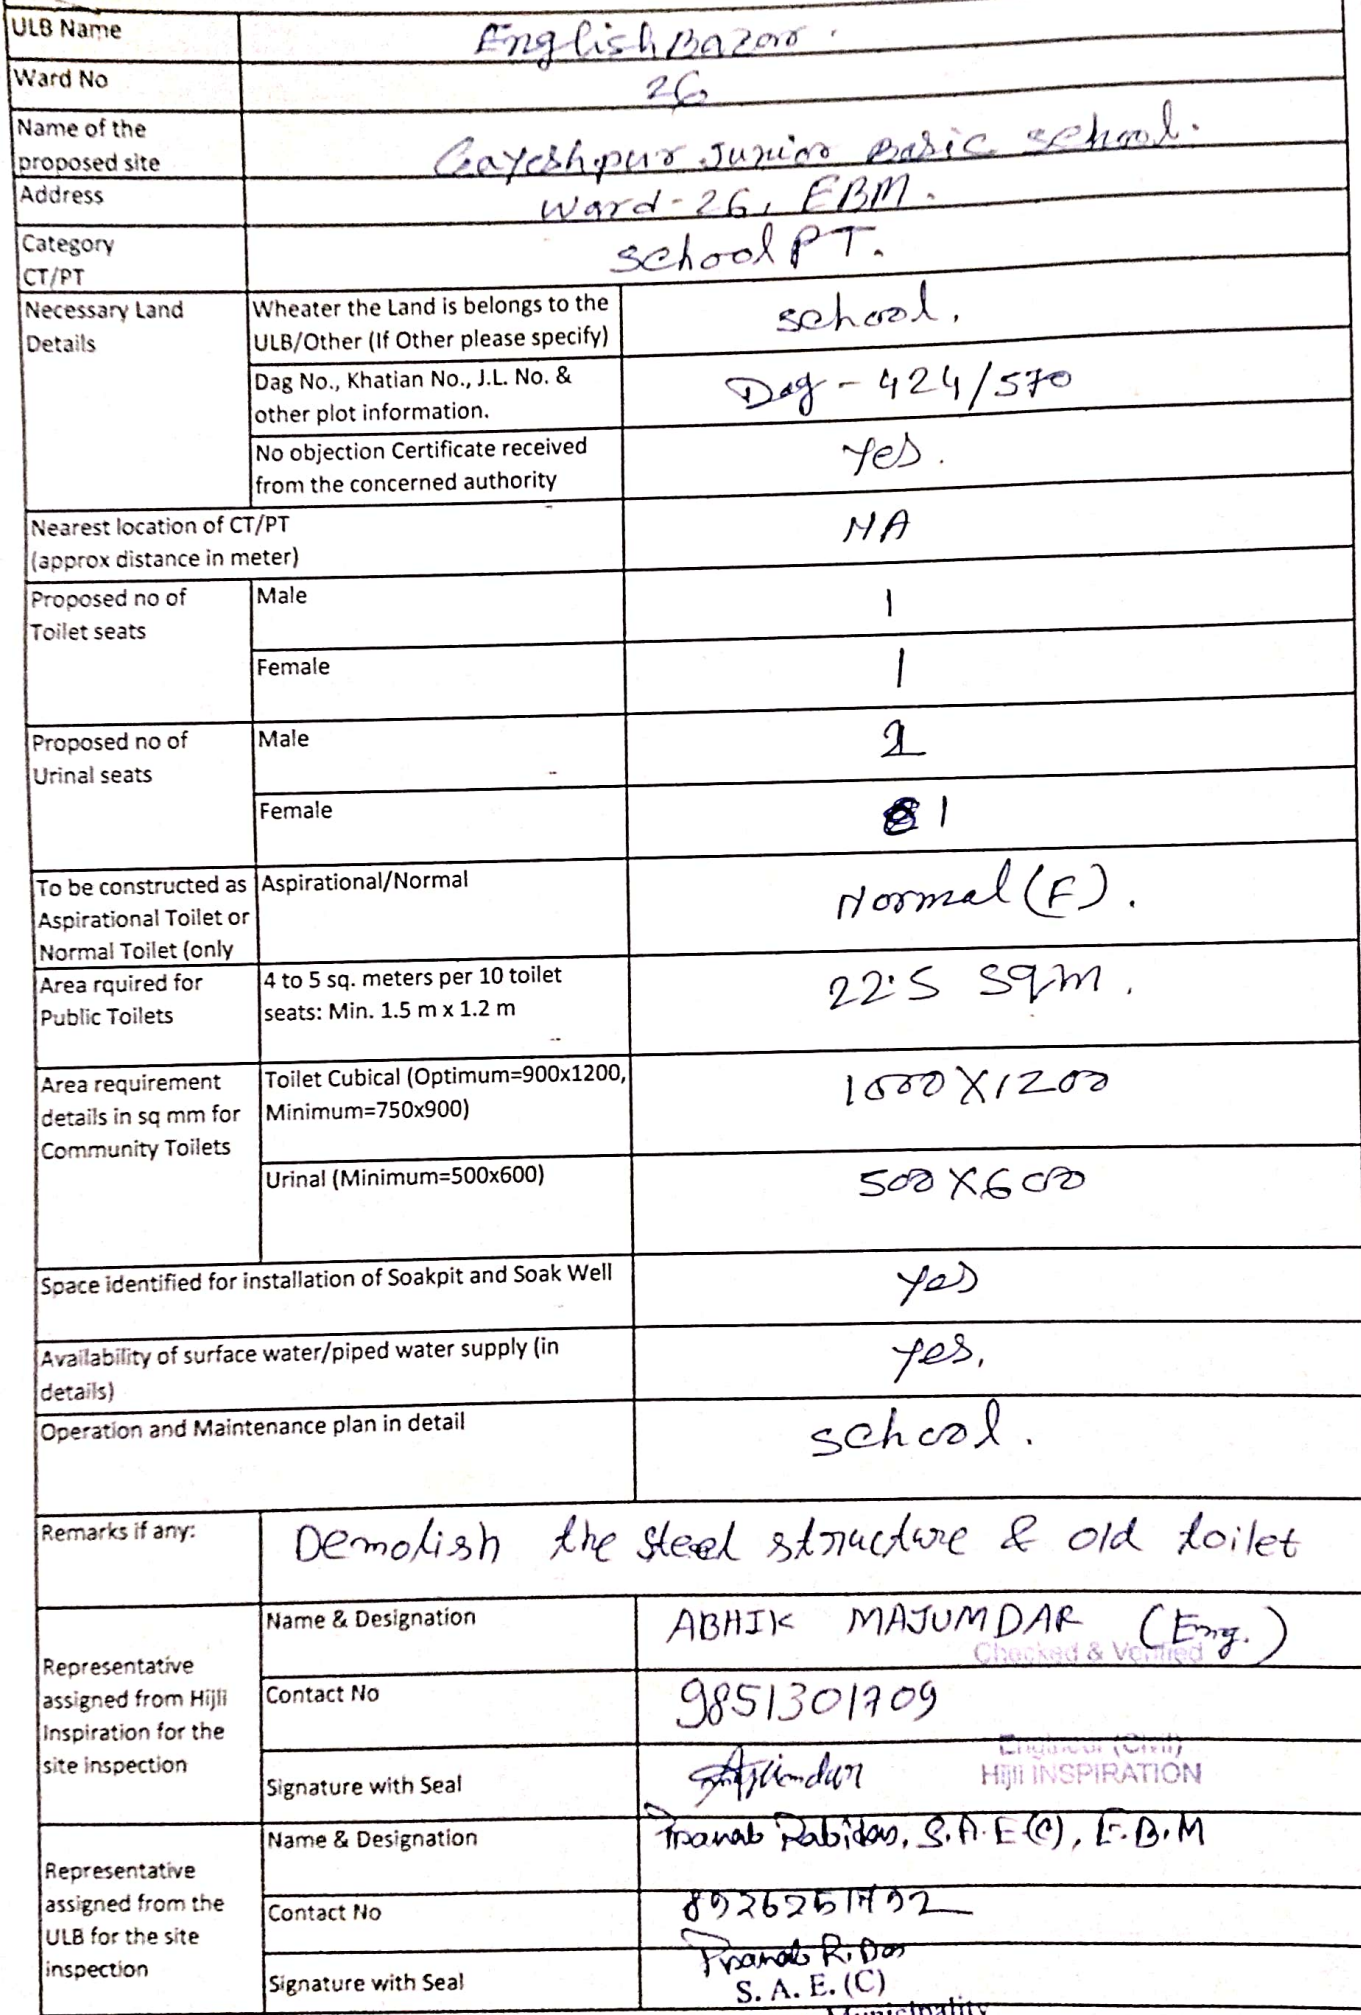 ULB Name English Bazar.
Ward No 26
Name of the
proposed site Gayeshpur Junior Basic school.
Address Ward-26, EBM.
Category
CT/PT school PT.
Necessary Land
Details
Wheater the Land is belongs to the
ULB/Other (If Other please specify) school.
Dag No., Khatian No., J.L. No. &
other plot information. Dag - 424/570
No objection Certificate received
from the concerned authority Yes.
Nearest location of CT/PT
(approx distance in meter) NA
Proposed no of
Toilet seats
Male 1
Female 1
Proposed no of
Urinal seats
Male
Female 1
To be constructed as
Aspirational Toilet or
Normal Toilet (only
Aspirational/Normal Normal (F).
Area rquired for
Public Toilets
4 to 5 sq. meters per 10 toilet
seats: Min. 1.5 m x 1.2 m
22.5 sqm.
Area requirement
details in sq mm for
Community Toilets
Toilet Cubical (Optimum=900x1200,
Minimum=750x900)
1000X1200
Urinal (Minimum=500x600) 500X600
Space identified for installation of Soakpit and Soak Well yes
Availability of surface water/piped water supply (in
details) yes.
Operation and Maintenance plan in detail school.
Remarks if any: Demolish the steel structure & old toilet
Representative
assigned from Hijli
Inspiration for the
site inspection
Name & Designation ABHIK MAJUMDAR (Eng.)
Checked & Verified
Contact No 9851301709
Engineer (Civil)
Signature with Seal
Hijli INSPIRATION
Representative
assigned from the
ULB for the site
inspection
Name & Designation Pranab Rabidas, S.A.E(C), E.B.M
Contact No 8926251792
Signature with Seal Pranab R. Das
S. A. E. (C)
Municipality